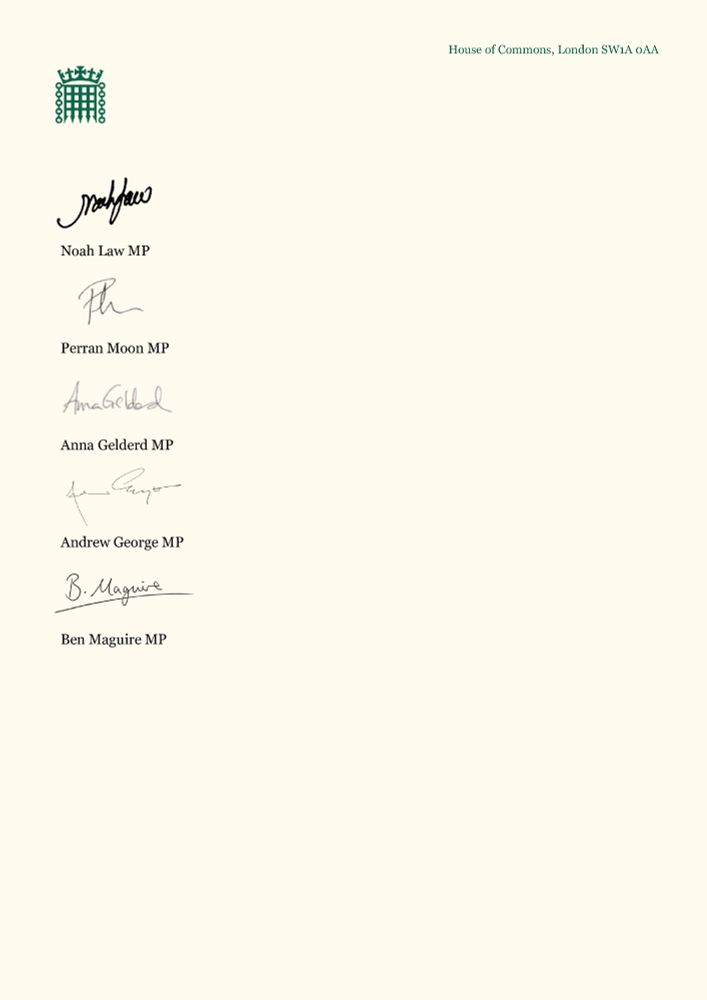 House of Commons, London SW1A 0AA
Noah Law
Noah Law MP
Perran Moon MP
Anna Gelderd
Anna Gelderd MP
Andrew George MP
B. Maguire
Ben Maguire MP